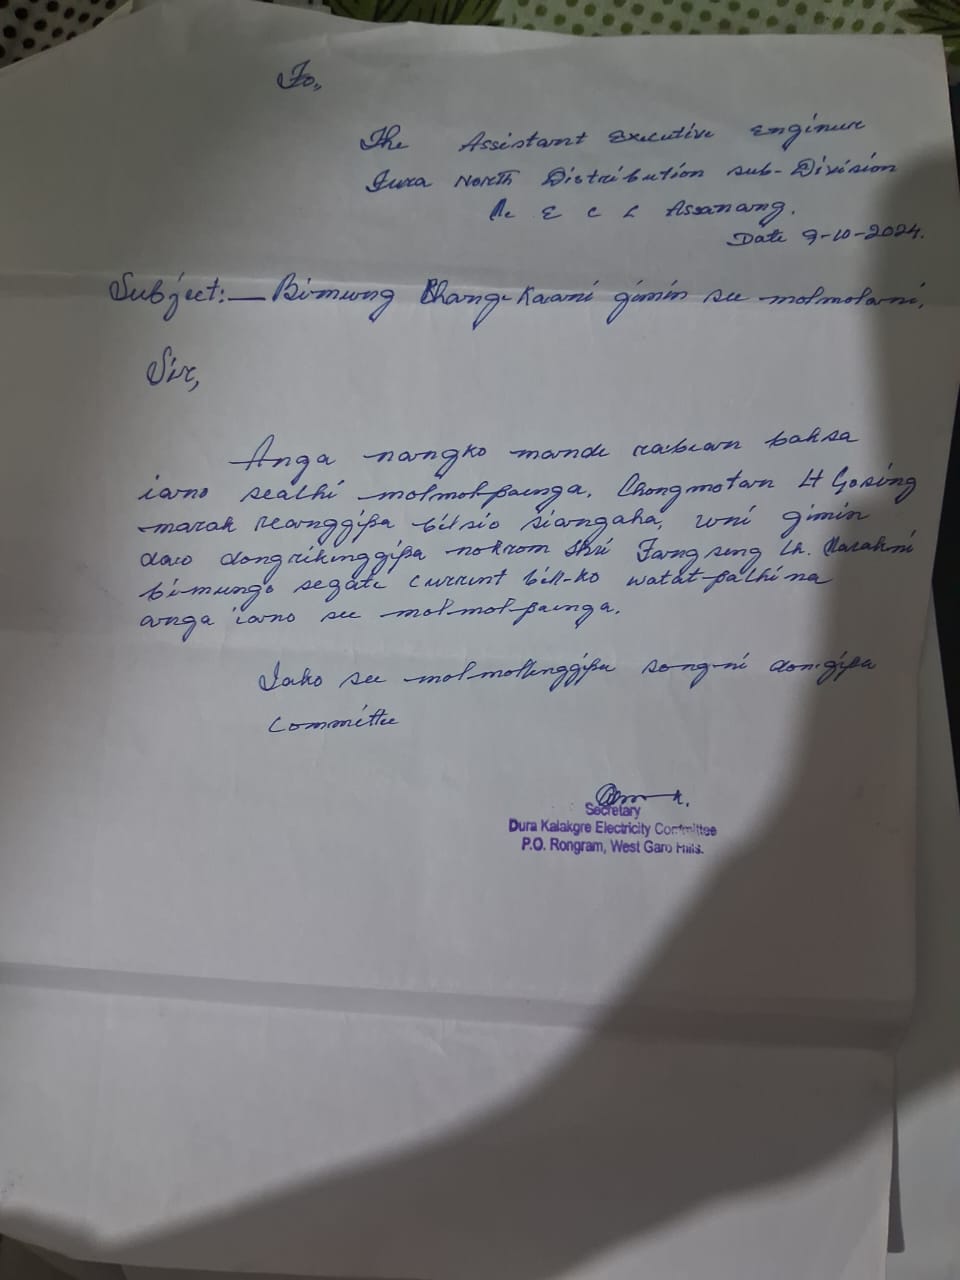 To,,
The Assistant Executive Enginere
Tura North Distribution sub-Division
Me E C L Assanang.
Date 9-10-2024.
Subject:- Bimung Bhang-Kaani gimin see molmolani.
Sir,
Anga nangko mande rabean baksa
iano sealhi molmolpaenga. Chongmotan Lt Gosing
marak reanggipa bilsio siangaha, uni gimin
dao dongrikinggipa nokrom Shri Tangseng Ch. Marakni
bimungo segate current bill-ko watatpalhina
anga iano see molmolpaenga.
Iako see molmolenggipa song-ni don·gipa
Committee
Secretary
Dura Kalakgre Electricity Committee
P.O. Rongram, West Garo Hills.